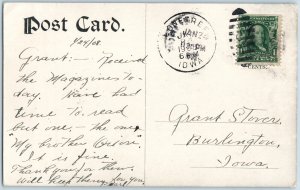 Post Card.
1/24/08
IOWA
JAN 24
CENTS.
Grant:- Received
the Magazines to-
day. Have had
time to read
but one - the one,
"My Brother
It is fine.
Thank you for them.
Will keep them for you
Grant Stover,
Burlington,
Iowa.